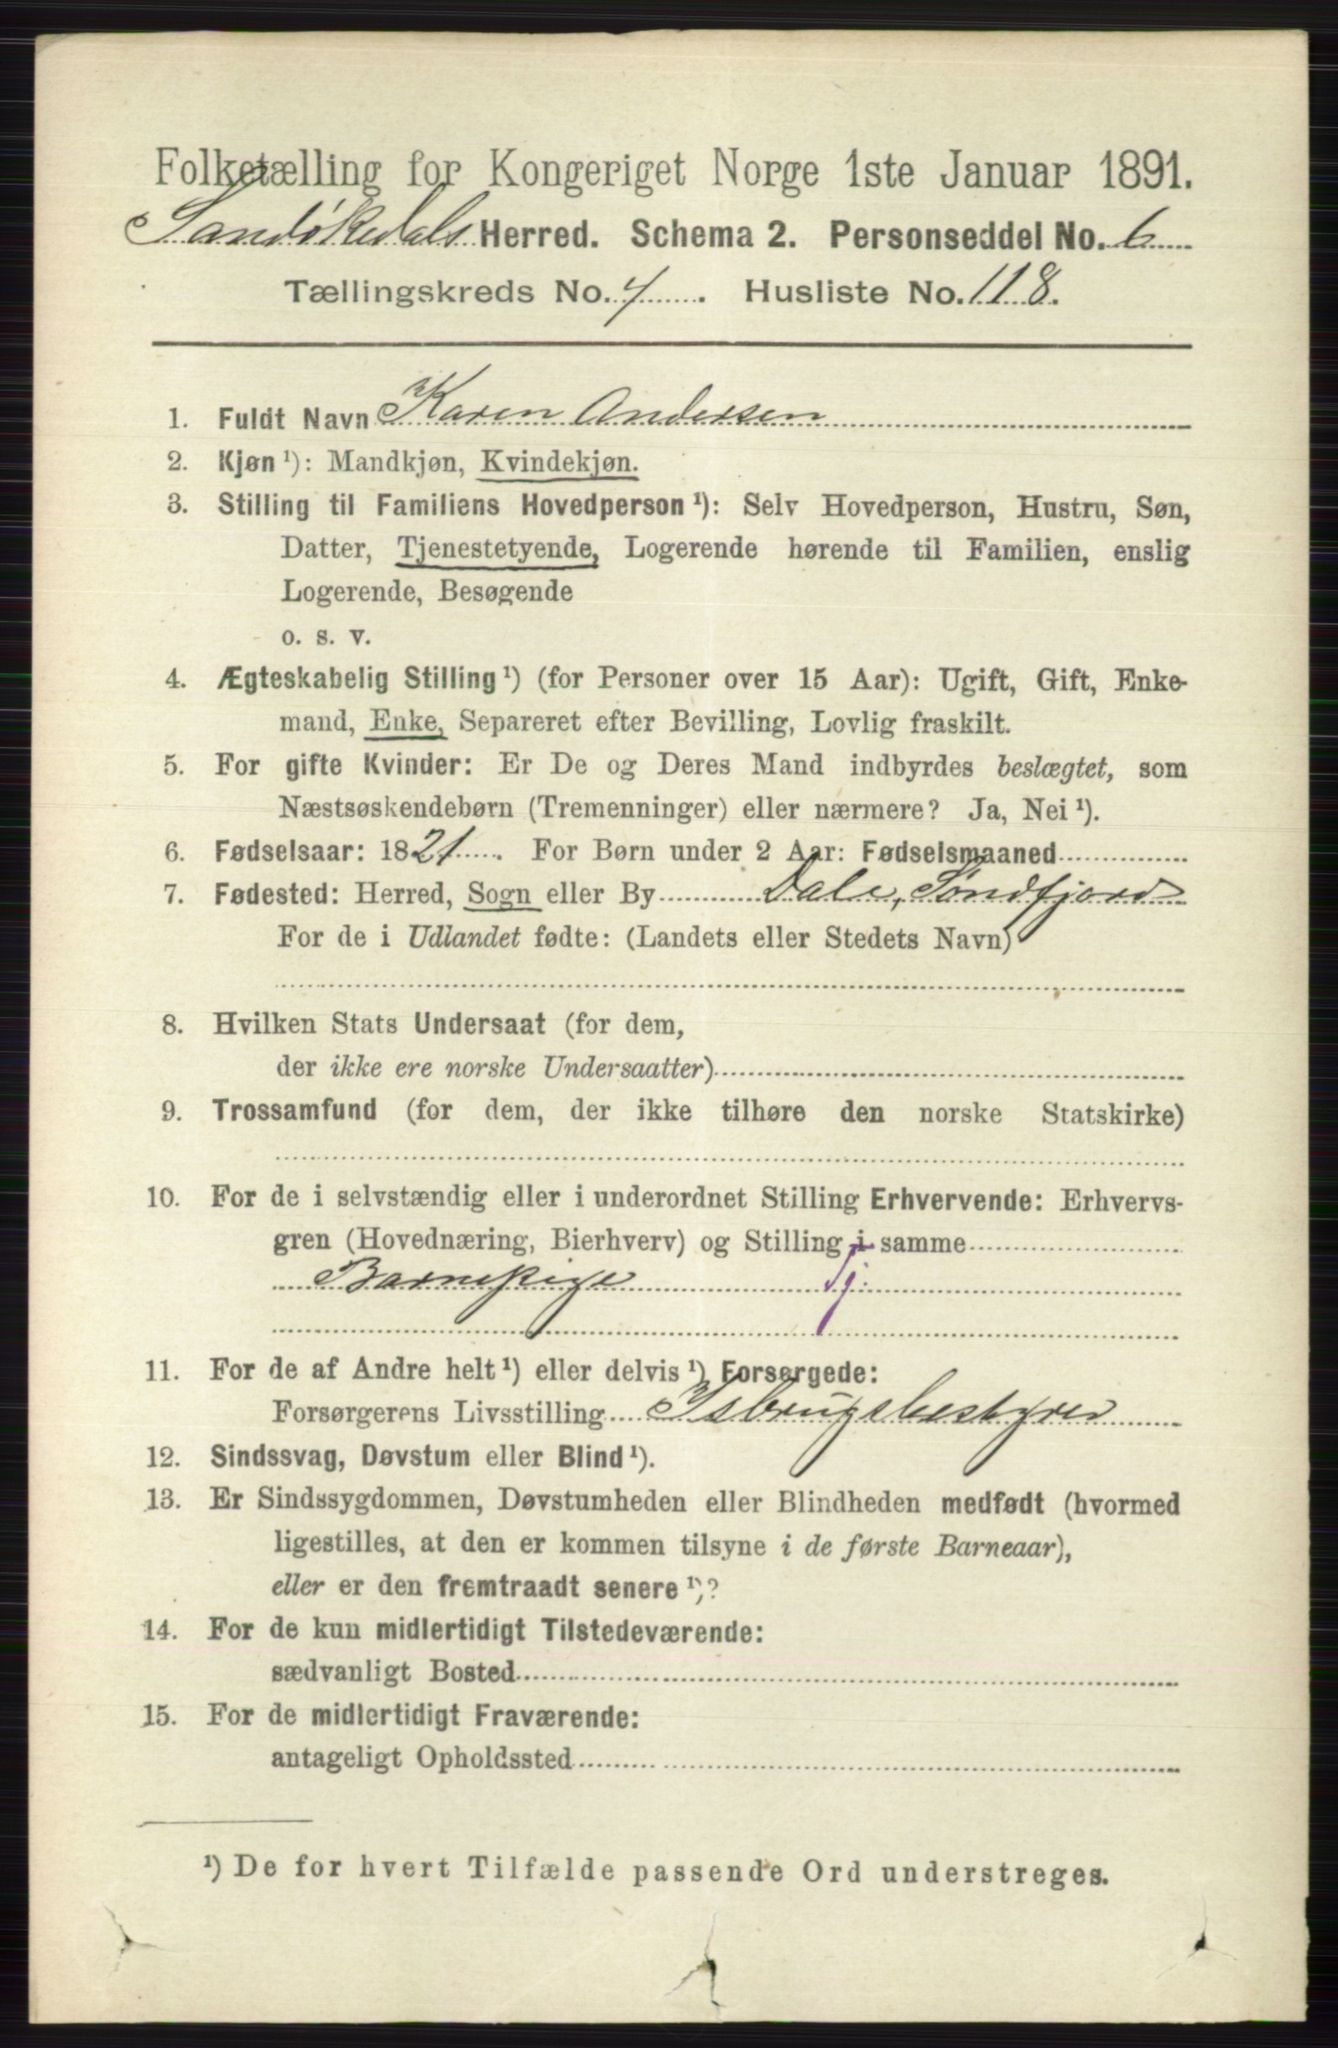 Folketælling for Kongeriget Norge 1ste Januar 1891.
Sandøkedals Herred. Schema 2. Personseddel No. 6
Tællingskreds No. 4 . Husliste No. 118.
1. Fuldt Navn Karen Andersen
2. Kjøn ¹): Mandkjøn, Kvindekjøn.
3. Stilling til Familiens Hovedperson ¹): Selv Hovedperson, Hustru, Søn,
Datter, Tjenestetyende, Logerende hørende til Familien, enslig
Logerende, Besøgende
o. s. v.
4. Ægteskabelig Stilling ¹) (for Personer over 15 Aar): Ugift, Gift, Enke-
mand, Enke, Separeret efter Bevilling, Lovlig fraskilt.
5. For gifte Kvinder: Er De og Deres Mand indbyrdes beslægtet, som
Næstsøskendebørn (Tremenninger) eller nærmere? Ja, Nei ¹).
6. Fødselsaar: 1821 . For Børn under 2 Aar: Fødselsmaaned
7. Fødested: Herred, Sogn eller By Dale, Søndfjord
For de i Udlandet fødte: (Landets eller Stedets Navn)
8. Hvilken Stats Undersaat (for dem,
der ikke ere norske Undersaatter)
9. Trossamfund (for dem, der ikke tilhøre den norske Statskirke)
10. For de i selvstændig eller i underordnet Stilling Erhvervende: Erhvervs-
gren (Hovednæring, Bierhverv) og Stilling i samme
Barnepige Tj.
11. For de af Andre helt ¹) eller delvis ¹) Forsørgede:
Forsørgerens Livsstilling Isbrugsbestyrer
12. Sindssvag, Døvstum eller Blind ¹).
13. Er Sindssygdommen, Døvstumheden eller Blindheden medfødt (hvormed
ligestilles, at den er kommen tilsyne i de første Barneaar),
eller er den fremtraadt senere ¹)?
14. For de kun midlertidigt Tilstedeværende:
sædvanligt Bosted
15. For de midlertidigt Fraværende:
antageligt Opholdssted
¹) De for hvert Tilfælde passende Ord understreges.